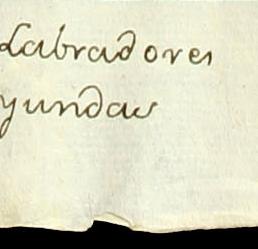 Labradores
yundas